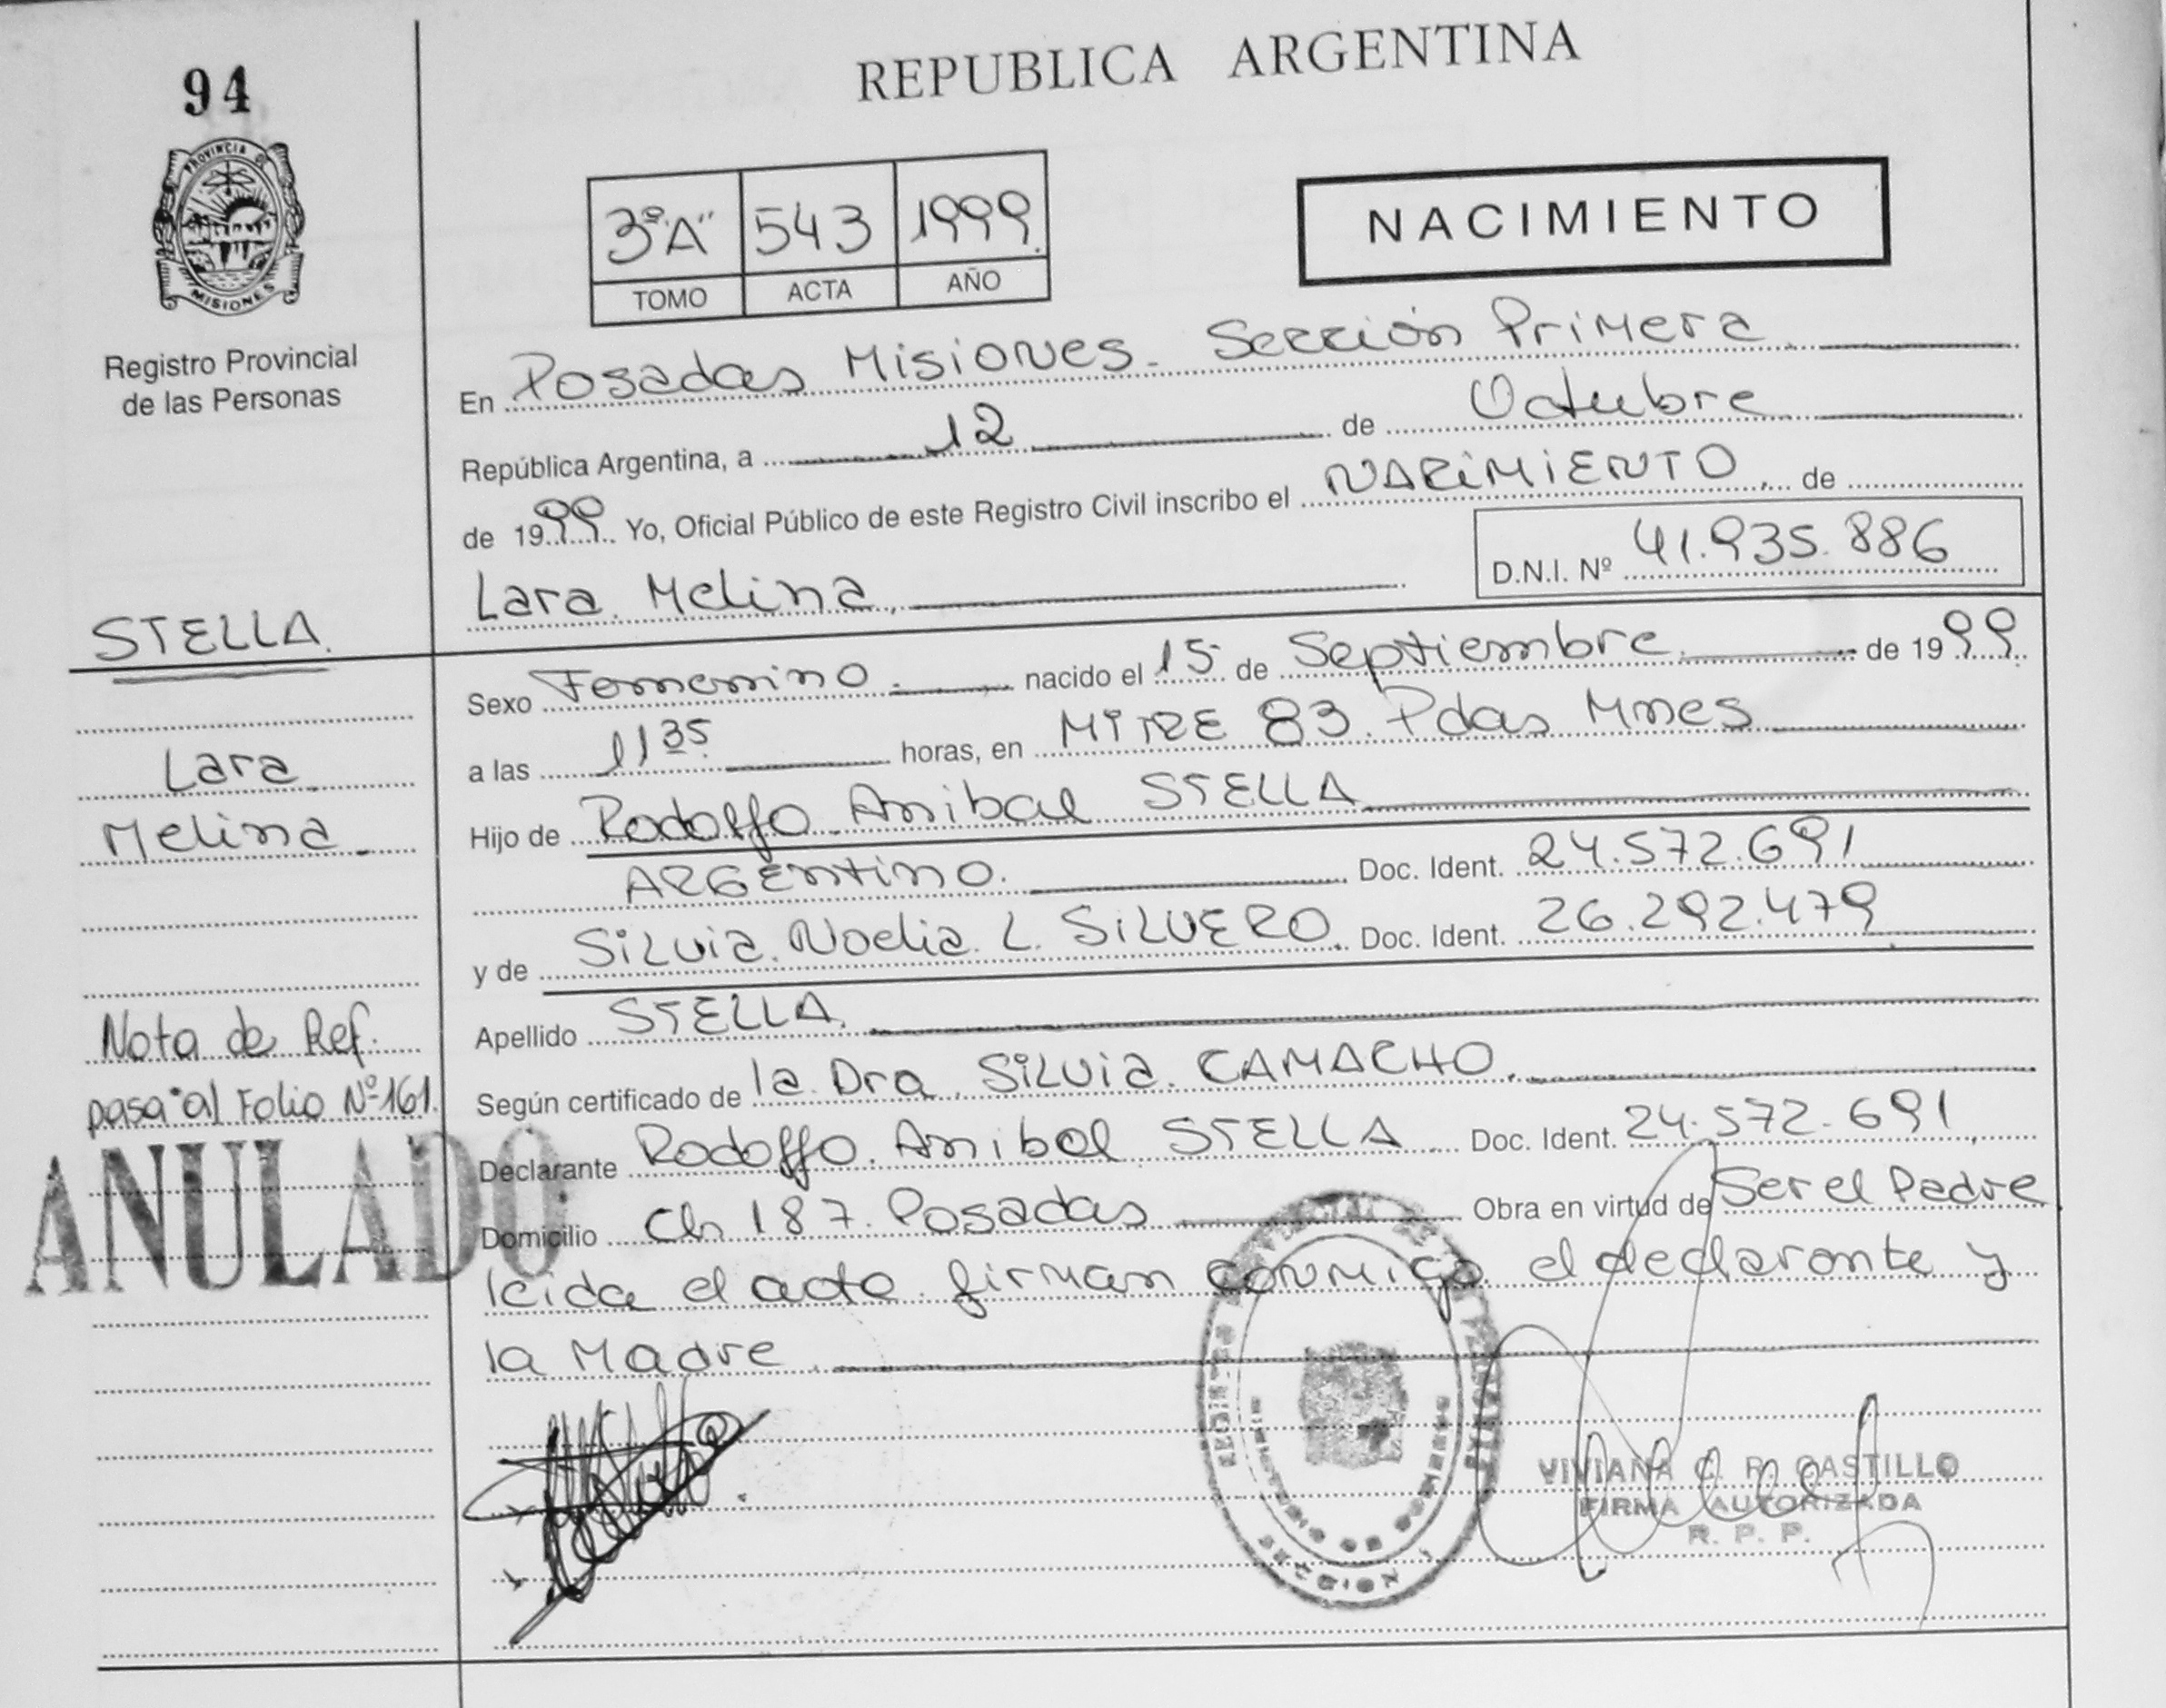 94
REPUBLICA ARGENTINA
PROVINCIA DE
MISIONES
Registro Provincial
de las Personas
3º"A" 543 1999
TOMO ACTA AÑO
NACIMIENTO
En Posadas Misiones. Sección Primera
República Argentina, a 12 de Octubre
de 1999. Yo, Oficial Público de este Registro Civil inscribo el NACIMIENTO, de
D.N.I. Nº 41.935.886
Lara Melina
STELLA
Lara
Melina
Sexo Femenino. nacido el 15 de Septiembre de 1999
a las 11 35 horas, en MITRE 83. Pdas Mnes
Hijo de Rodolfo Anibal STELLA
ARGENTINO. Doc. Ident. 24.572.691
y de Silvia Noelia L. SILVERO. Doc. Ident. 26.292.479
Apellido STELLA.
Según certificado de la Dra. Silvia CAMACHO.
Declarante Rodolfo Anibal STELLA Doc. Ident. 24.572.691
Domicilio Ch 187. Posadas Obra en virtud de Ser el Padre
leida el acta firman conmigo el declarante y
la Madre.
Nota de Ref.
pasa al Folio Nº 161
ANULADO
VIVIANA C. R. CASTILLO
FIRMA AUTORIZADA
R. P. P.